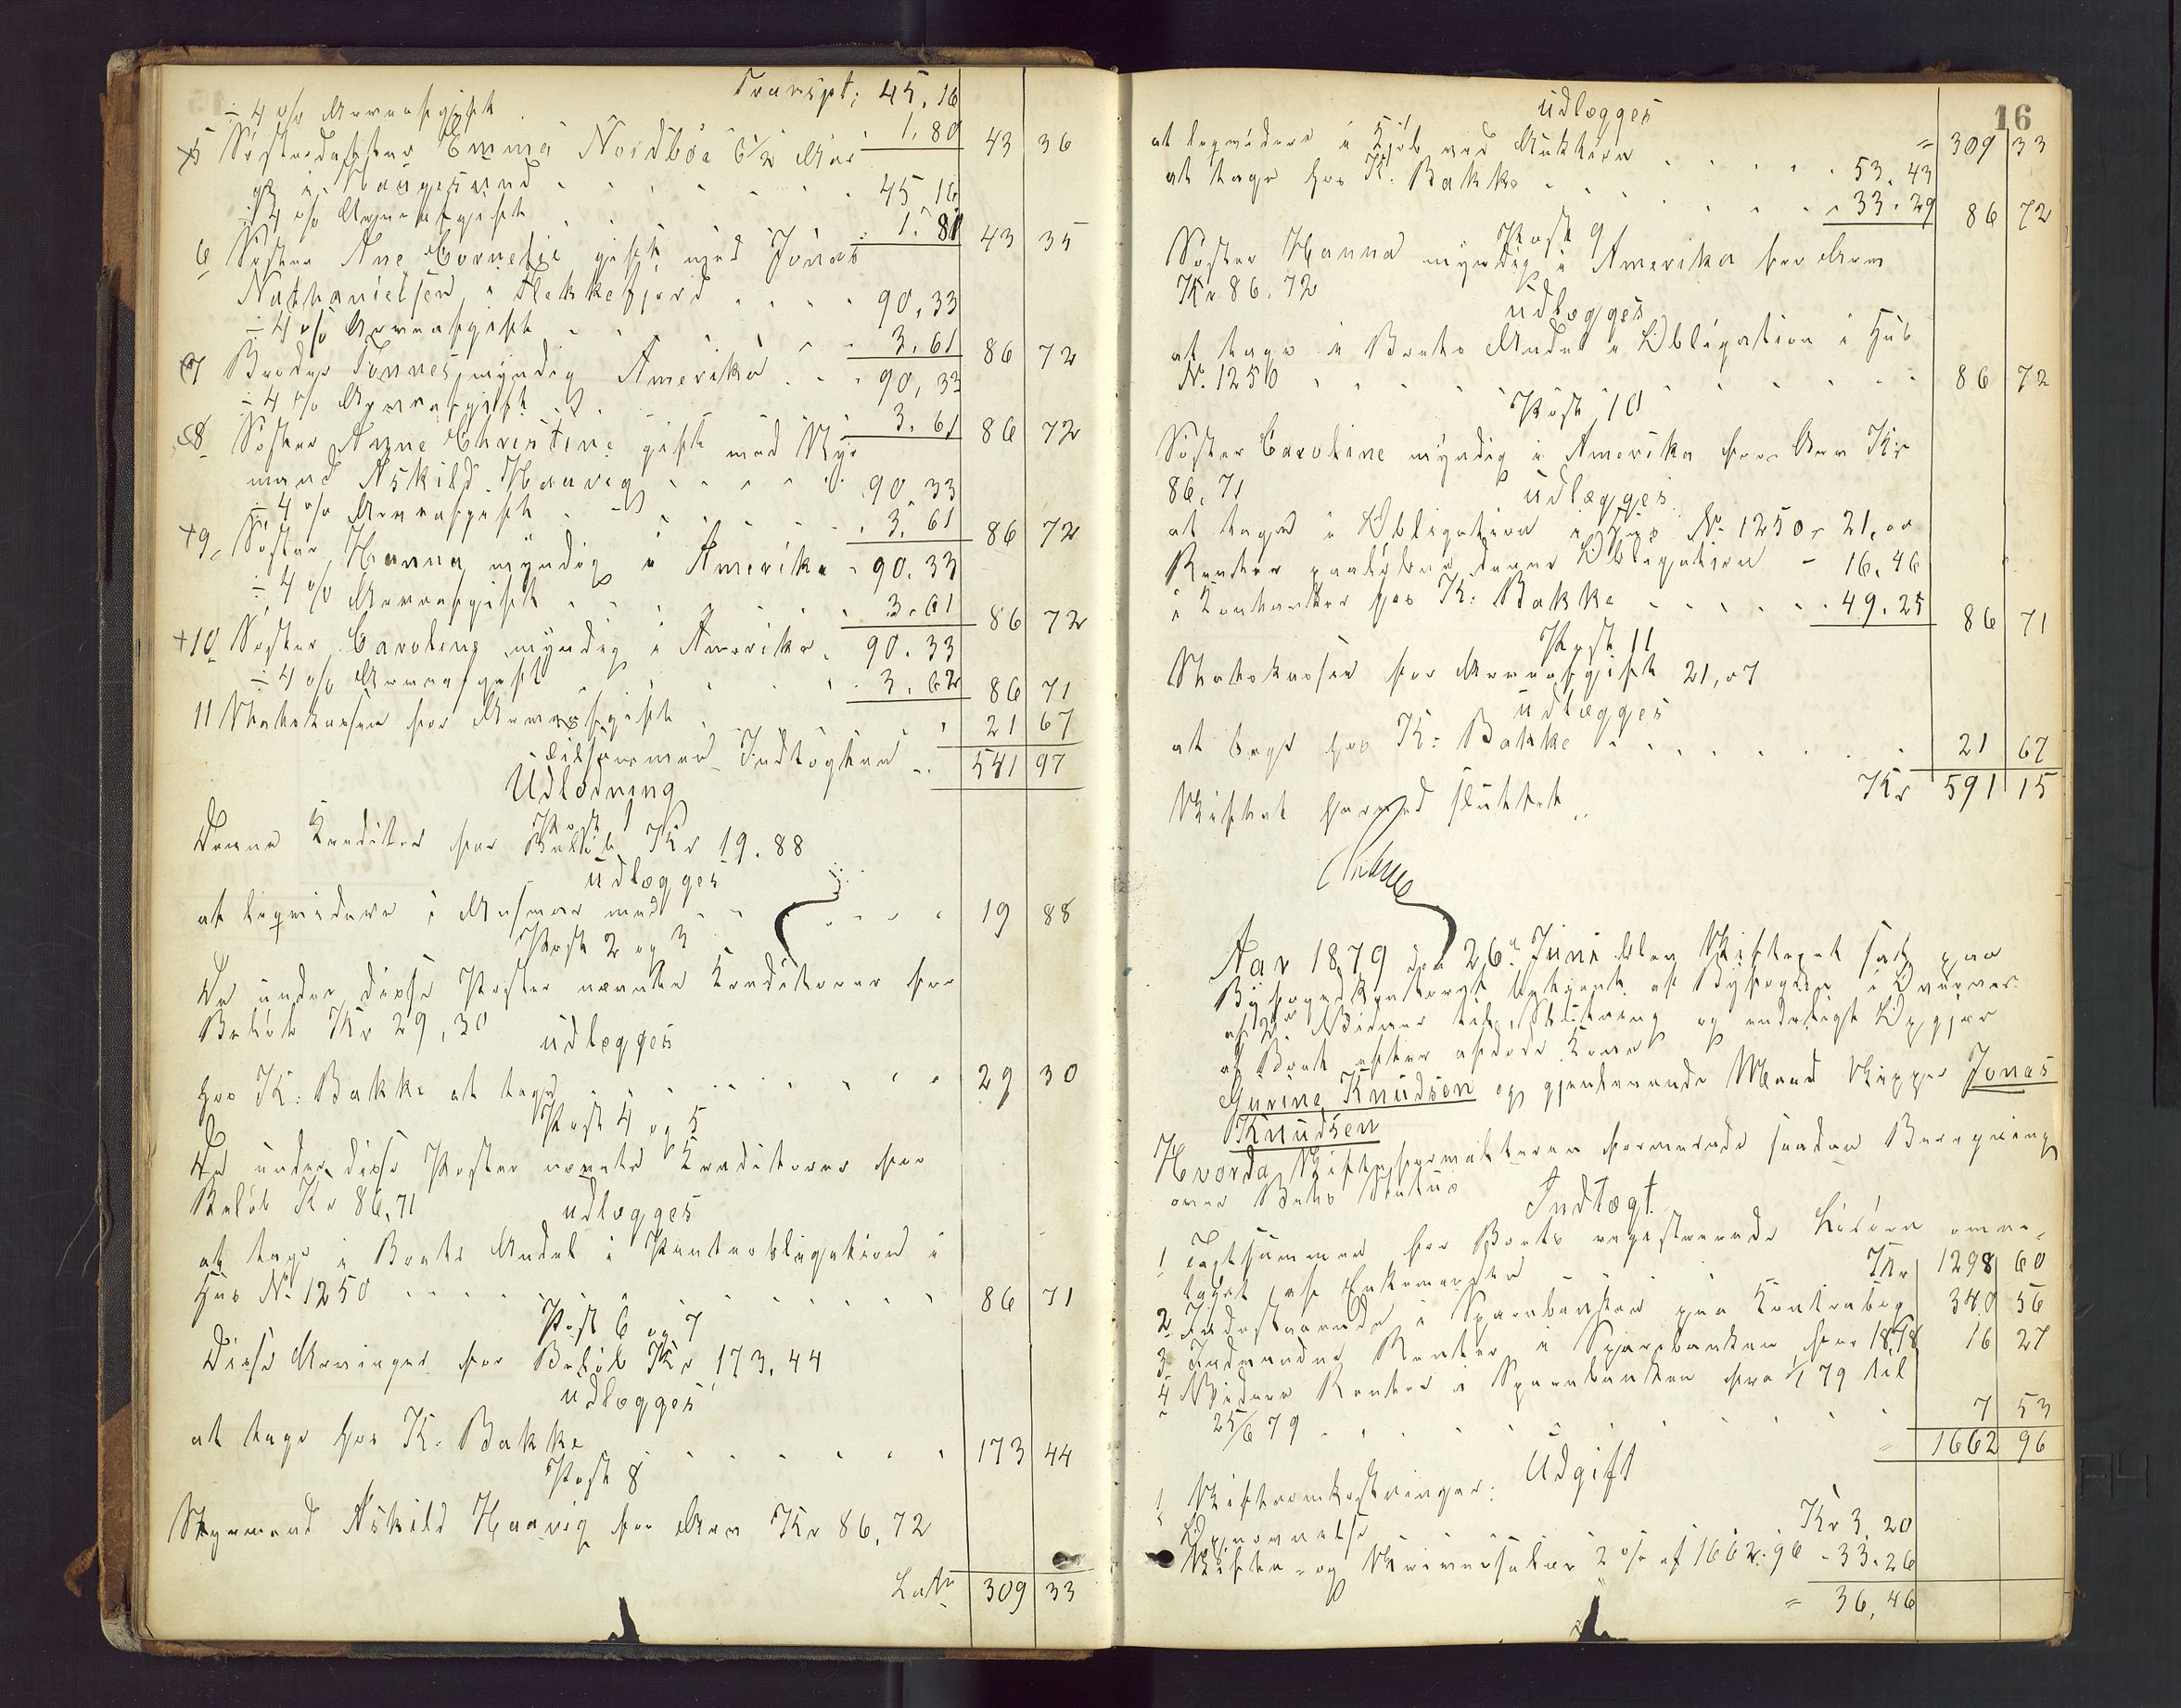 Transpt: 45,16
÷ 4 % Arveafgift . 1.80 43 36
5 Søsterdatter Emma Nordböe 6 1/2 Aar
i Haugesund . . . . 45 16
÷ 4 % Arveafgift . . . 1.81 43 35
6 Søster Ane Cornelie gift med Jonas
Nathanielsen i Flekkefjord . . . . 90,33
÷ 4 % Arveafgift . . . 3.61 86 72
7 Broder Tønnes, myndig Amerika . . . 90,33
÷ 4 % Arveafgift . . 3.61 86 72
8 Søster Anne Christine gift med Styr
mand Askild Haavig . . . . 90,33
÷ 4 % Arveafgift . . . 3.61 86 72
9 Søster Hanna myndig i Amerika - 90.33
÷ 4 % Arveafgift . . . 3.61 86 72
10 Søster Caroline myndig i Amerika . 90.33
÷ 4 % Arveafgift . . . 3.62 86 71
11 Statskassen for Arveafgift . . . 21 67
tilsammen Indtægten . . 541 97
Udlodning
Post 1
Denne Kreditor for Beløb Kr 19.88
udlægges
at liqvidere i Masse med . . . . 19 88
Post 2 og 3
De under disse Poster nævnte Kreditorer for
Beløb Kr 29,30
udlægges
hos K: Bakke at tage . . . . 29 30
Post 4 og 5
De under disse Poster nævnte Kreditorer for
Beløb Kr 86,71
udlægges
at tage i Boets Andel i Panteobligation i
Hus No. 1250 . . . . 86 71
Post 6 og 7
Disse Arvinger for Beløb Kr 173,44
udlægges
at tage hos K: Bakke . . . . 173 44
Post 8
Styrmand Askild Haavig for Arv Kr 86,72
Latr 309 33
16
udlægges = 309 33
at liqvidere i Kjøb ved Auktion . . . . 53.43
at tage hos K: Bakke . . . . 33.29 86 72
Post 9
Søster Hanna myndig i Amerika for Arv
Kr 86.72
udlægges
at tage i Boets Andel i Obligation i Hus
No. 1250 . . . . 86 72
Post 10
Søster Caroline myndig i Amerika for Arv Kr
86,71
udlægges
at tage i Obligation i Hus No. 1250 - 21,00
Renter paaløbne denne Obligation - 16.46
i Kontanter hos K: Bakke . . . . 49.25 86 71
Post 11
Statskassen for Arveafgift 21,07
udlægges
at tage hos K: Bakke . . . . 21 67
Kr 591 15
Skiftet hermed sluttet.
Aar 1879 den 26de Juni blev Skifteret sat paa
Byfogedkontoret betjent af Byfogden i Overvær
af 2de Vidner til Slutning og endeligt Opgjør
af Boet efter afdøde Kone
Gurine Knudsen og gjenlevende Mand Skipper Jonas
Knudsen
Hvorda Skifteforvalteren formerede saadan Beregning
over Boets Status
Indtægt
1 Taxtsummen for Boets registrerede Løsøre over-
taget af Enkemanden Kr 1298 60
2 Indestaaende i Sparebanken paa Kontrabog 340 56
3 Indvundne Renter i Sparebanken for 1878 16 27
4 Videre Renter i Sparebanken fra 1/1 79 til
25/6 79 . . . . 7 53
= 1662 96
Udgift
1 Skifteomkostninger:
Opnævnelse Kr 3.20
Skifte- og Skriversalær 2 % af 1662.96 - 33.26
= 36,46